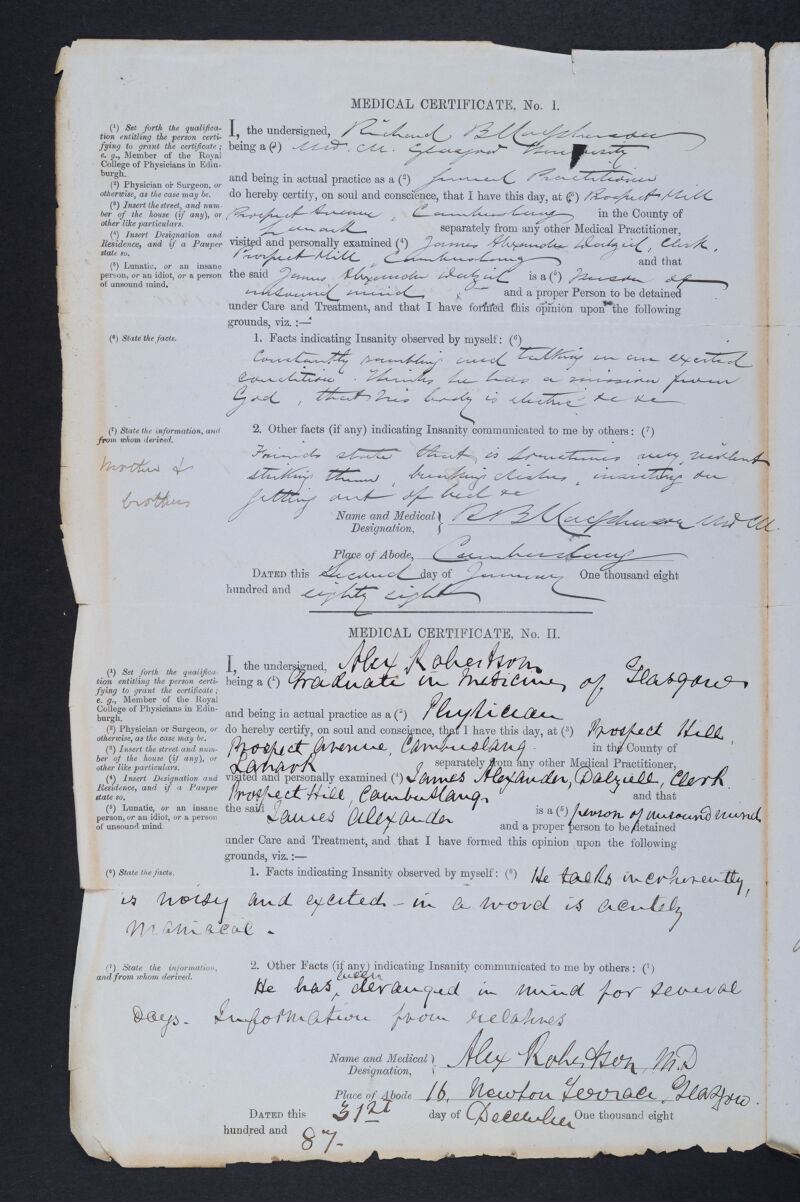 MEDICAL CERTIFICATE, No. I.
(¹) Set forth the qualifica-
tion entitling the person certi-
fying to grant the certificate;
e. g., Member of the Royal
College of Physicians in Edin-
burgh.
(²) Physician or Surgeon, or
otherwise, as the case may be.
(³) Insert the street, and num-
ber of the house (if any), or
other like particulars.
(⁴) Insert Designation and
Residence, and if a Pauper
state so.
(⁵) Lunatic, or an insane
person, or an idiot, or a person
of unsound mind.
I, the undersigned, Richard B Macpherson
being a (¹) M.D. C.M. Glasgow University
and being in actual practice as a (²) General Practitioner
do hereby certify, on soul and conscience, that I have this day, at (³) Prospect Hill
Prospect Avenue, Cambuslang in the County of
Lanark separately from any other Medical Practitioner,
visited and personally examined (⁴) James Alexander Dalziel, Clerk.
Prospect Hill, Cambuslang and that
the said James Alexander Dalziel is a (⁵) Person of
unsound mind and a proper Person to be detained
under Care and Treatment, and that I have formed this opinion upon the following
grounds, viz. :—
(⁶) State the facts.
1. Facts indicating Insanity observed by myself: (⁶)
Constantly rambling and talking in an excited
condition. Thinks he has a mission from
God, that his body is electric &c &c
(⁷) State the information, and
from whom derived.
Mother &
brothers
2. Other facts (if any) indicating Insanity communicated to me by others: (⁷)
Friends state that is sometimes very violent
striking them, breaking dishes, insisting on
getting out of bed &c
Name and Medical
Designation, R B Macpherson M.D. C.M.
Place of Abode, Cambuslang
DATED this Second day of January One thousand eight
hundred and eighty eight
MEDICAL CERTIFICATE, No. II.
(¹) Set forth the qualifica-
tion entitling the person certi-
fying to grant the certificate;
e. g., Member of the Royal
College of Physicians in Edin-
burgh.
(²) Physician or Surgeon, or
otherwise, as the case may be.
(³) Insert the street and num-
ber of the house (if any), or
other like particulars.
(⁴) Insert Designation and
Residence, and if a Pauper
state so.
(⁵) Lunatic, or an insane
person, or an idiot, or a person
of unsound mind
I, the undersigned, Alex Robertson
being a (¹) Graduate in Medicine, of Glasgow
and being in actual practice as a (²) Physician
do hereby certify, on soul and conscience, that I have this day, at (³) Prospect Hill,
Prospect Avenue, Cambuslang in the County of
Lanark separately from any other Medical Practitioner,
visited and personally examined (⁴) James Alexander, Dalzell, Clerk.
Prospect Hill, Cambuslang. and that
the said James Alexander is a (⁵) person of unsound mind
and a proper person to be detained
under Care and Treatment, and that I have formed this opinion upon the following
grounds, viz. :—
(⁶) State the facts.
1. Facts indicating Insanity observed by myself: (⁶) He talks incoherently,
is noisy and excited - in a word is acutely
maniacal.
(⁷) State the information,
and from whom derived.
2. Other Facts (if any) indicating Insanity communicated to me by others: (⁷)
He has been deranged in mind for several
days. Information from relatives
Name and Medical
Designation, Alex Robertson, M.D
Place of Abode 16, Newton Terrace, Glasgow.
DATED this 31st day of December One thousand eight
hundred and 87-